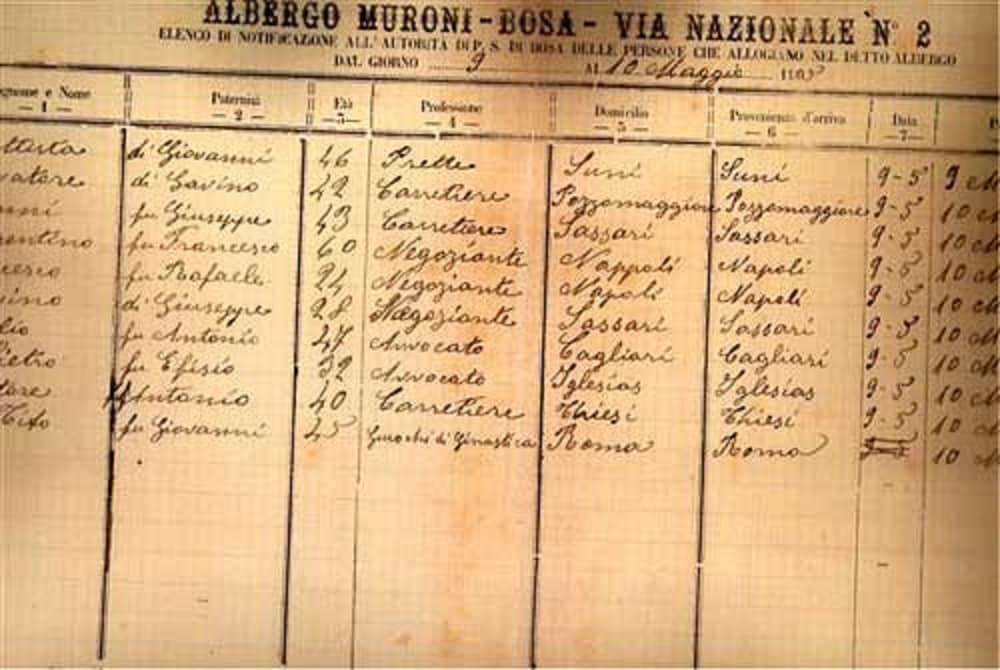 ALBERGO MURONI - BOSA - VIA NAZIONALE N° 2
ELENCO DI NOTIFICAZIONE ALL'AUTORITÀ DI P. S. DI BOSA DELLE PERSONE CHE ALLOGIANO NEL DETTO ALBERGO
DAL GIORNO 9 AL 10 Maggio
Nome Paternità Età Professione Domicilio Provenienza d'arrivo Data
— 1 — — 2 — — 3 — — 4 — — 5 — — 6 — — 7 —
di Giovanni 46 Prette Suni Suni 9-5 9
di Gavino 42 Carretiere Pozzomaggiore Pozzomaggiore 9-5 10
fu Giuseppe 43 Carretiere Sassari Sassari 9-5 10
fu Francesco 60 Negoziante Nappoli Napoli 9-5 10
fu Rafaelle 24 Negoziante Napoli Napoli 9-5 10
di Giuseppe 28 Negoziante Sassari Sassari 9-5 10
fu Antonio 47 Avvocato Cagliari Cagliari 9-5 10
fu Efisio 32 Avvocato Iglesias Iglesias 9-5 10
Antonio 40 Carretiere Thiesi Thiesi 9-5 10
fu Giovanni 25 Giuochi di Ginastica Roma Roma 10